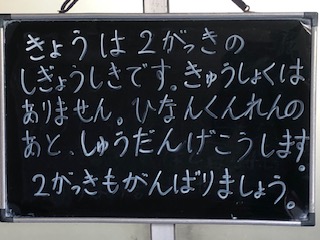 きょうは2がっきの
しぎょうしきです。きゅうしょくは
ありません。ひなんくんれんの
あと、しゅうだんげこうします。
2がっきもがんばりましょう。